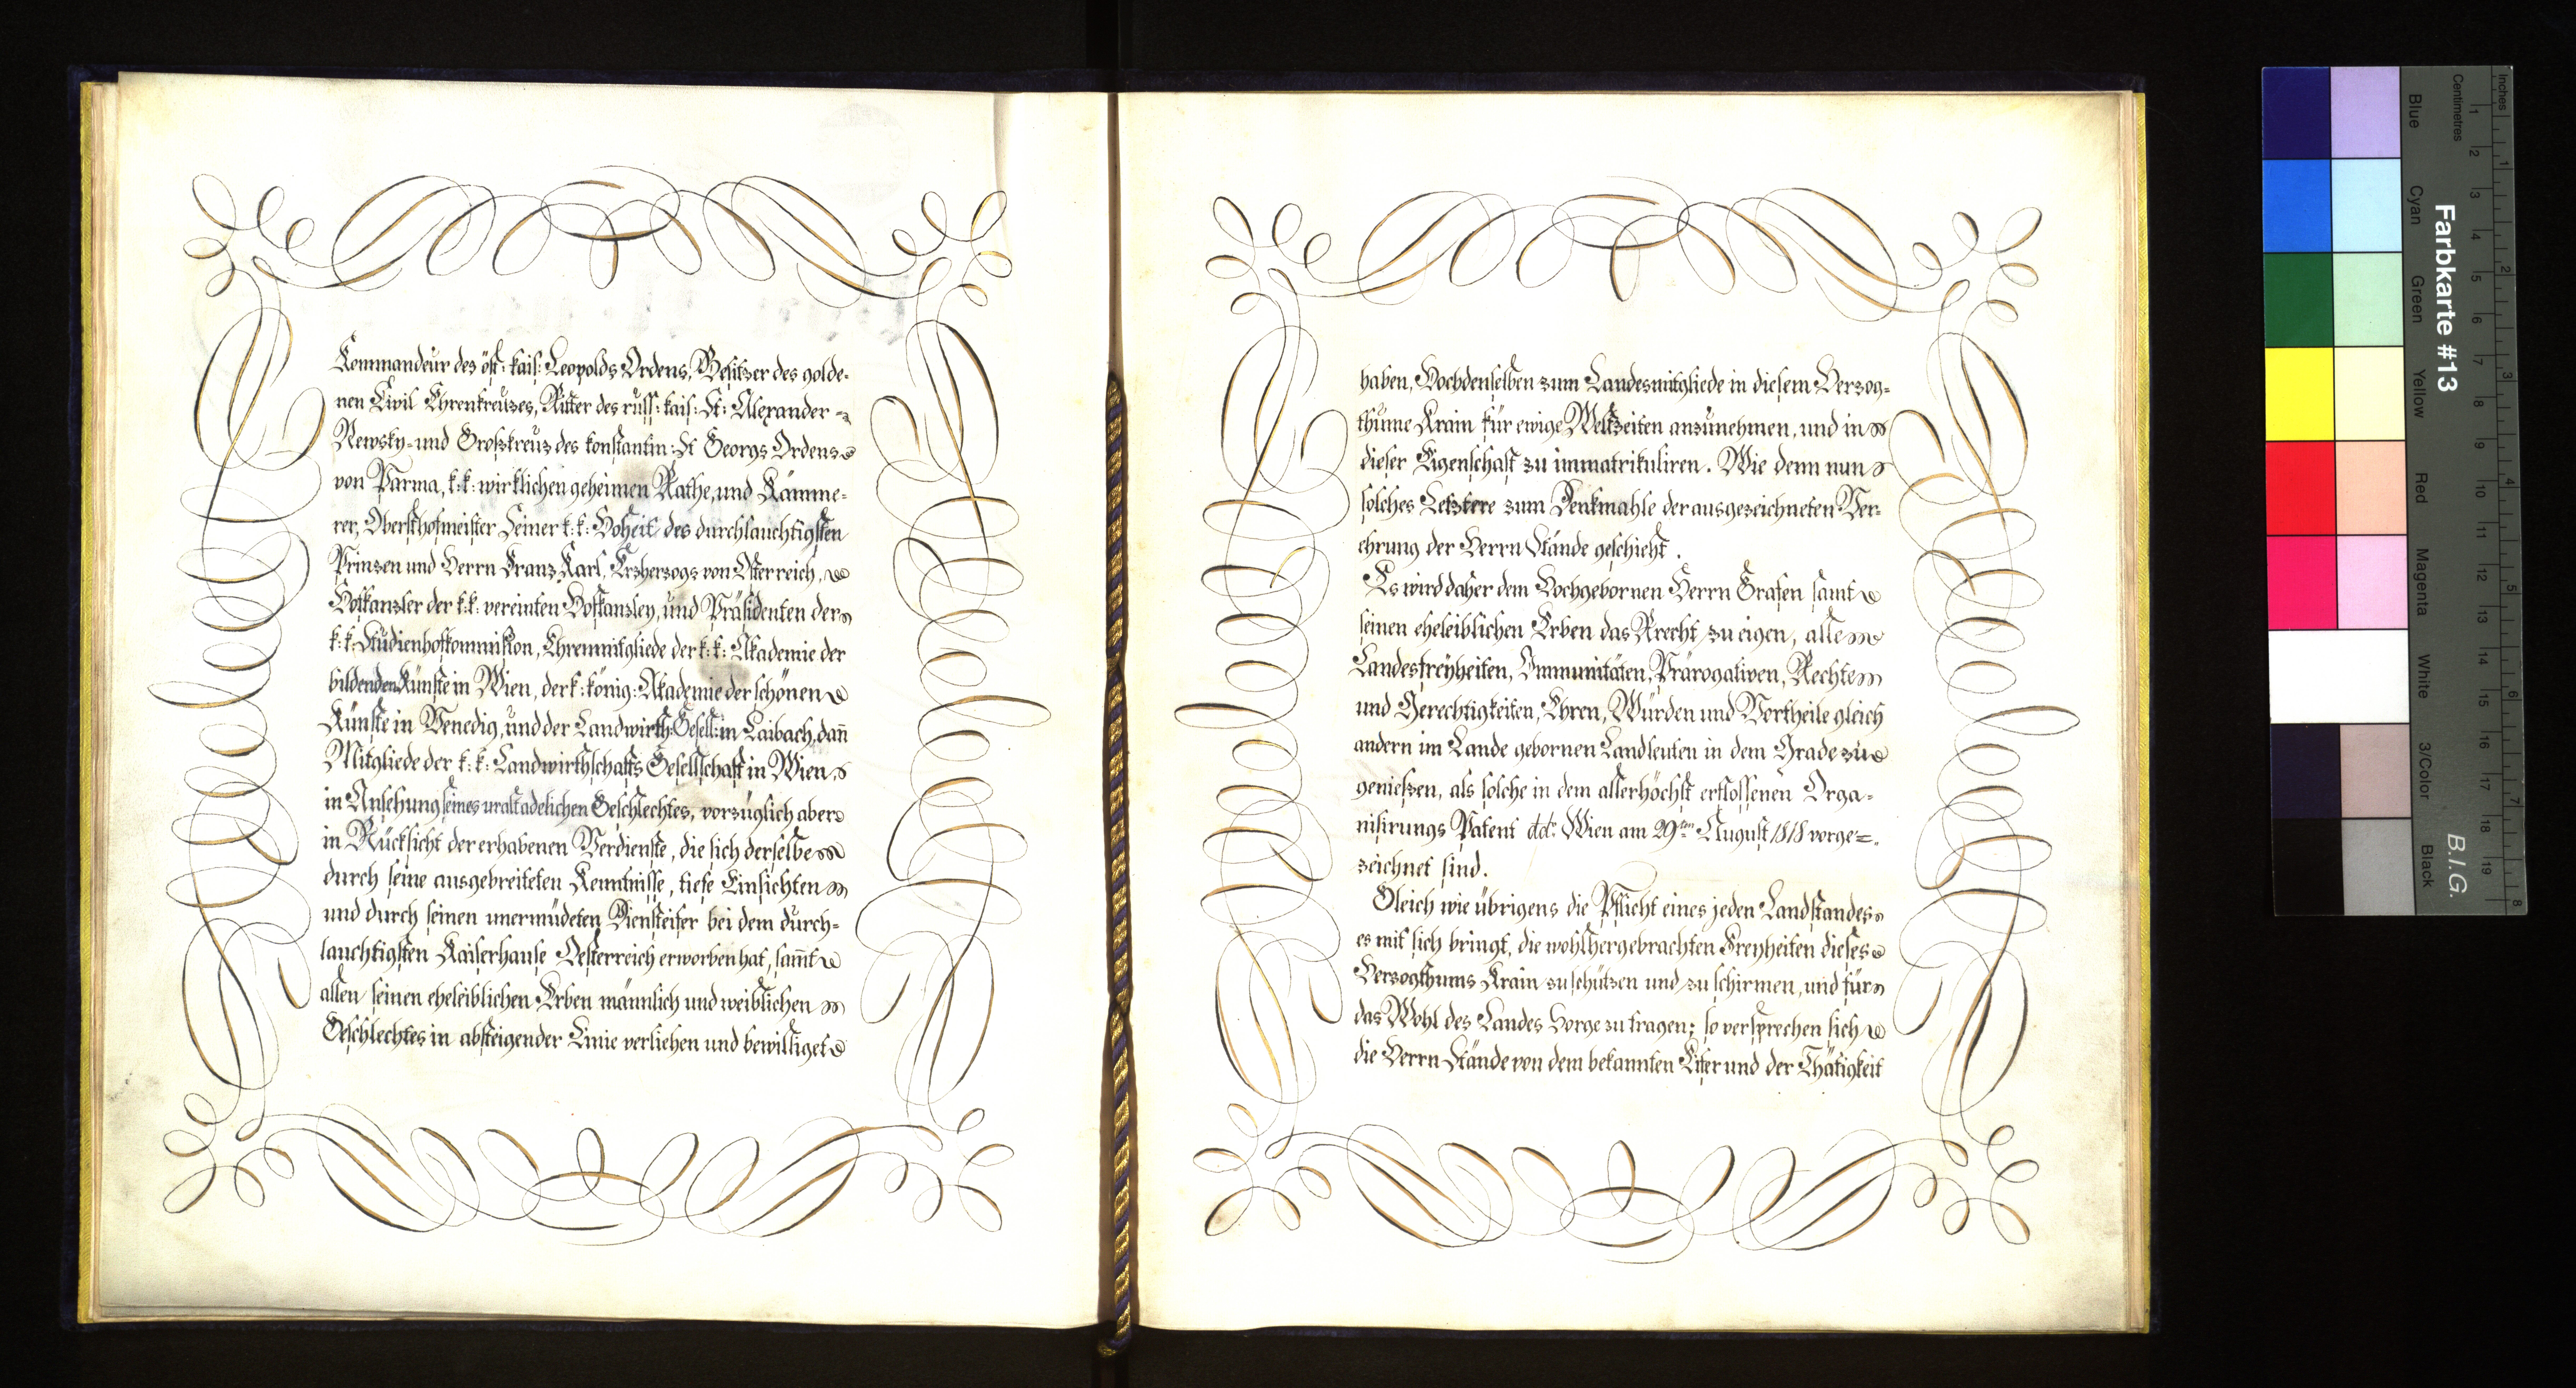 Kommandeur des öst: kais: Leopolds Ordens, Besitzer des golde-
nen Civil Ehrenkreuzes, Ritter des russ: kais: St: Alexander-
Newsky- und Großkreuz des konstantin: St Georgs Ordens
von Parma, k: k: wirklichen geheimen Rathe, und Kämme-
rer, Obersthofmeister Seiner k: k: Hoheit des durchlauchtigsten
Prinzen und Herrn Franz Karl, Erzherzogs von Österreich,
Hofkanzler der k: k: vereinten Hofkanzley, und Präsidenten der
k: k: Studienhofkommißion, Ehrenmitgliede der k: k: Akademie der
bildenden Künste in Wien, der k: könig: Akademie der schönen
Künste in Venedig, und der Landwirth: Gesell: in Laibach, dan̄
Mitgliede der k: k: Landwirthschafts Gesellschaft in Wien
in Ansehung seines uraltadelichen Geschlechtes, vorzüglich aber
in Rücksicht der erhabenen Verdienste, die sich derselbe
durch seine ausgebreiteten Kenntnisse, tiefe Einsichten
und durch seinen unermüdeten Diensteifer bei dem durch-
lauchtigsten Kaiserhause Oesterreich erworben hat, sam̄t
allen seinen eheleiblichen Erben männlich und weiblichen
Geschlechtes in absteigender Linie verliehen und bewilliget
haben, Hochdenselben zum Landesmitgliede in diesem Herzog-
thume Krain für ewige Weltzeiten anzunehmen, und in
dieser Eigenschaft zu immatrikuliren. Wie denn nun
solches Letztere zum Denkmahle der ausgezeichneten Ver-
ehrung der Herrn Stände geschieht.
Es wird daher dem Hochgebornen Herrn Grafen samt
seinen eheleiblichen Erben das Rrecht zu eigen, alle
Landesfreyheiten, Immunitäten, Prärogativen, Rechte
und Gerechtigkeiten, Ehren, Würden und Vortheile gleich
andern im Lande gebornen Landleuten in dem Grade zu
genießen, als solche in dem allerhöchst erflossenen Orga-
nisirungs Patent ddo Wien am 29ten August 1818 vorge-
zeichnet sind.
Gleich wie übrigens die Pflicht eines jeden Landstandes
es mit sich bringt, die wohlhergebrachten Freyheiten dieses
Herzogthums Krain zu schützen und zu schirmen, und für
das Wohl des Landes Sorge zu tragen; so versprechen sich
die Herrn Stände von dem bekannten Eifer und der Thätigkeit
Farbkarte #13
B.I.G.
Inches
Centimetres
Blue
Cyan
Green
Yellow
Red
Magenta
White
3/Color
Black
1 2 3 4 5 6 7 8
1 2 3 4 5 6 7 8 9 10 11 12 13 14 15 16 17 18 19